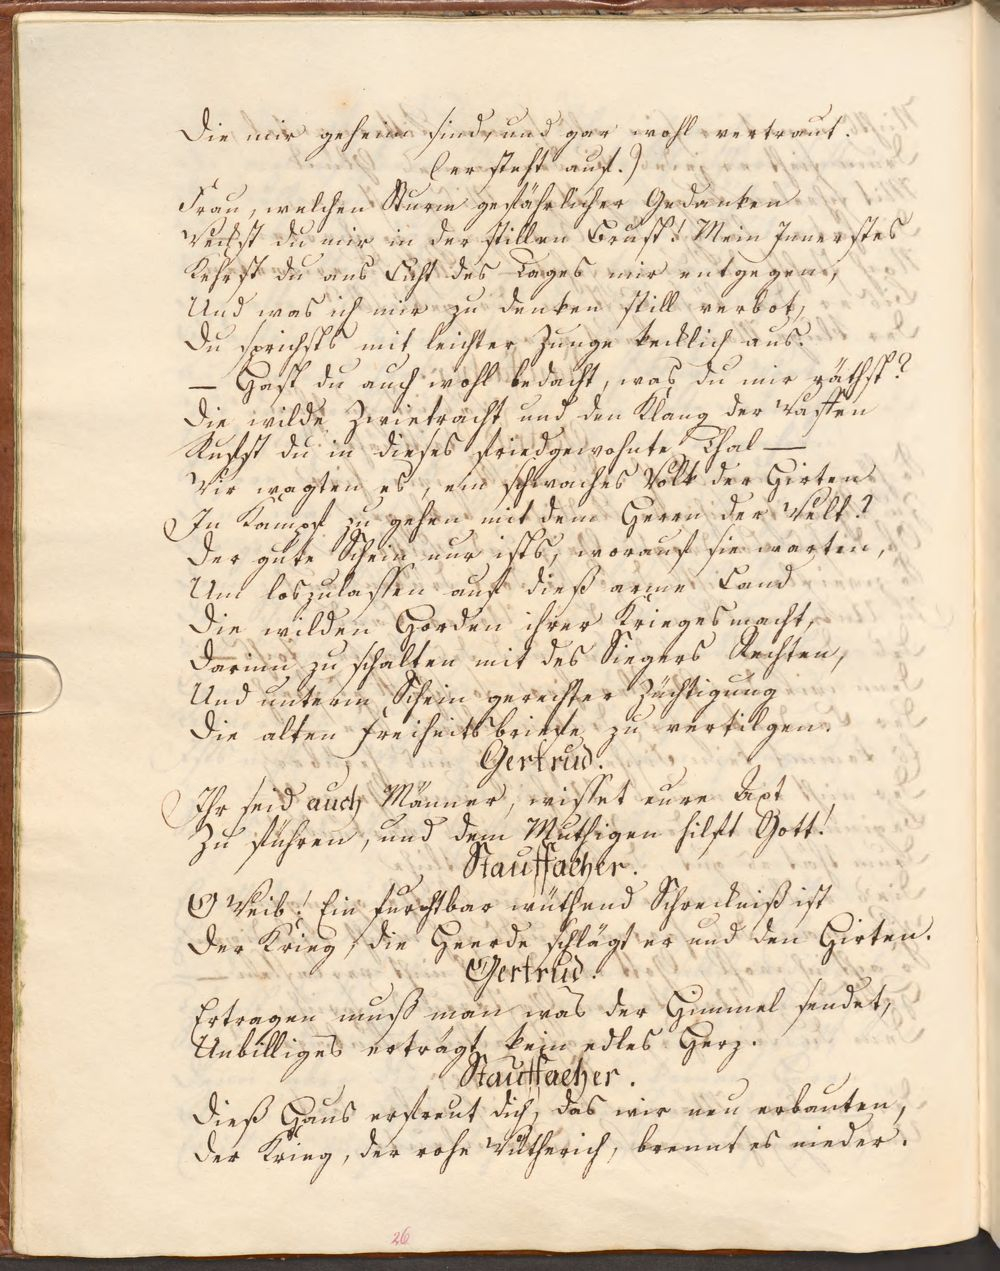 Die mir geheim sind, und gar wohl vertraut.
(er steht auf.)
Frau, welchen Sturm gefährlicher Gedanken
Weckst du mir in der stillen Brust! Mein Innerstes
Kehrst du ans Licht des Tages mir entgegen,
Und was ich mir zu denken still verbot,
Du sprichsts mit leichter Zunge kecklich aus.
— Hast du auch wohl bedacht, was du mir räthst?
Die wilde Zwietracht und den Klang der Waffen
Rufst du in dieses friedgewohnte Thal —
Wir wagten es, ein schwaches Volk der Hirten
In Kampf zu gehen mit dem Herrn der Welt?
Der gute Schein nur ists, worauf sie warten,
Um loszulassen auf dieß arme Land
Die wilden Horden ihrer Kriegesmacht,
Darinn zu schalten mit des Siegers Rechten,
Und unterm Schein gerechter Züchtigung
Die alten Freiheitsbriefe zu vertilgen.
Gertrud.
Ihr seid auch Männer, wisset eure Axt
Zu führen, und dem Muthigen hilft Gott!
Stauffacher.
O Weib! Ein furchtbar wüthend Schreckniß ist
Der Krieg, die Heerde schlägt er und den Hirten.
Gertrud.
Ertragen muß man was der Himmel sendet,
Unbilliges erträgt kein edles Herz.
Stauffacher.
Dieß Haus erfreut dich, das wir neu erbauten,
Der Krieg, der rohe Wütherich, brennt es nieder.
26